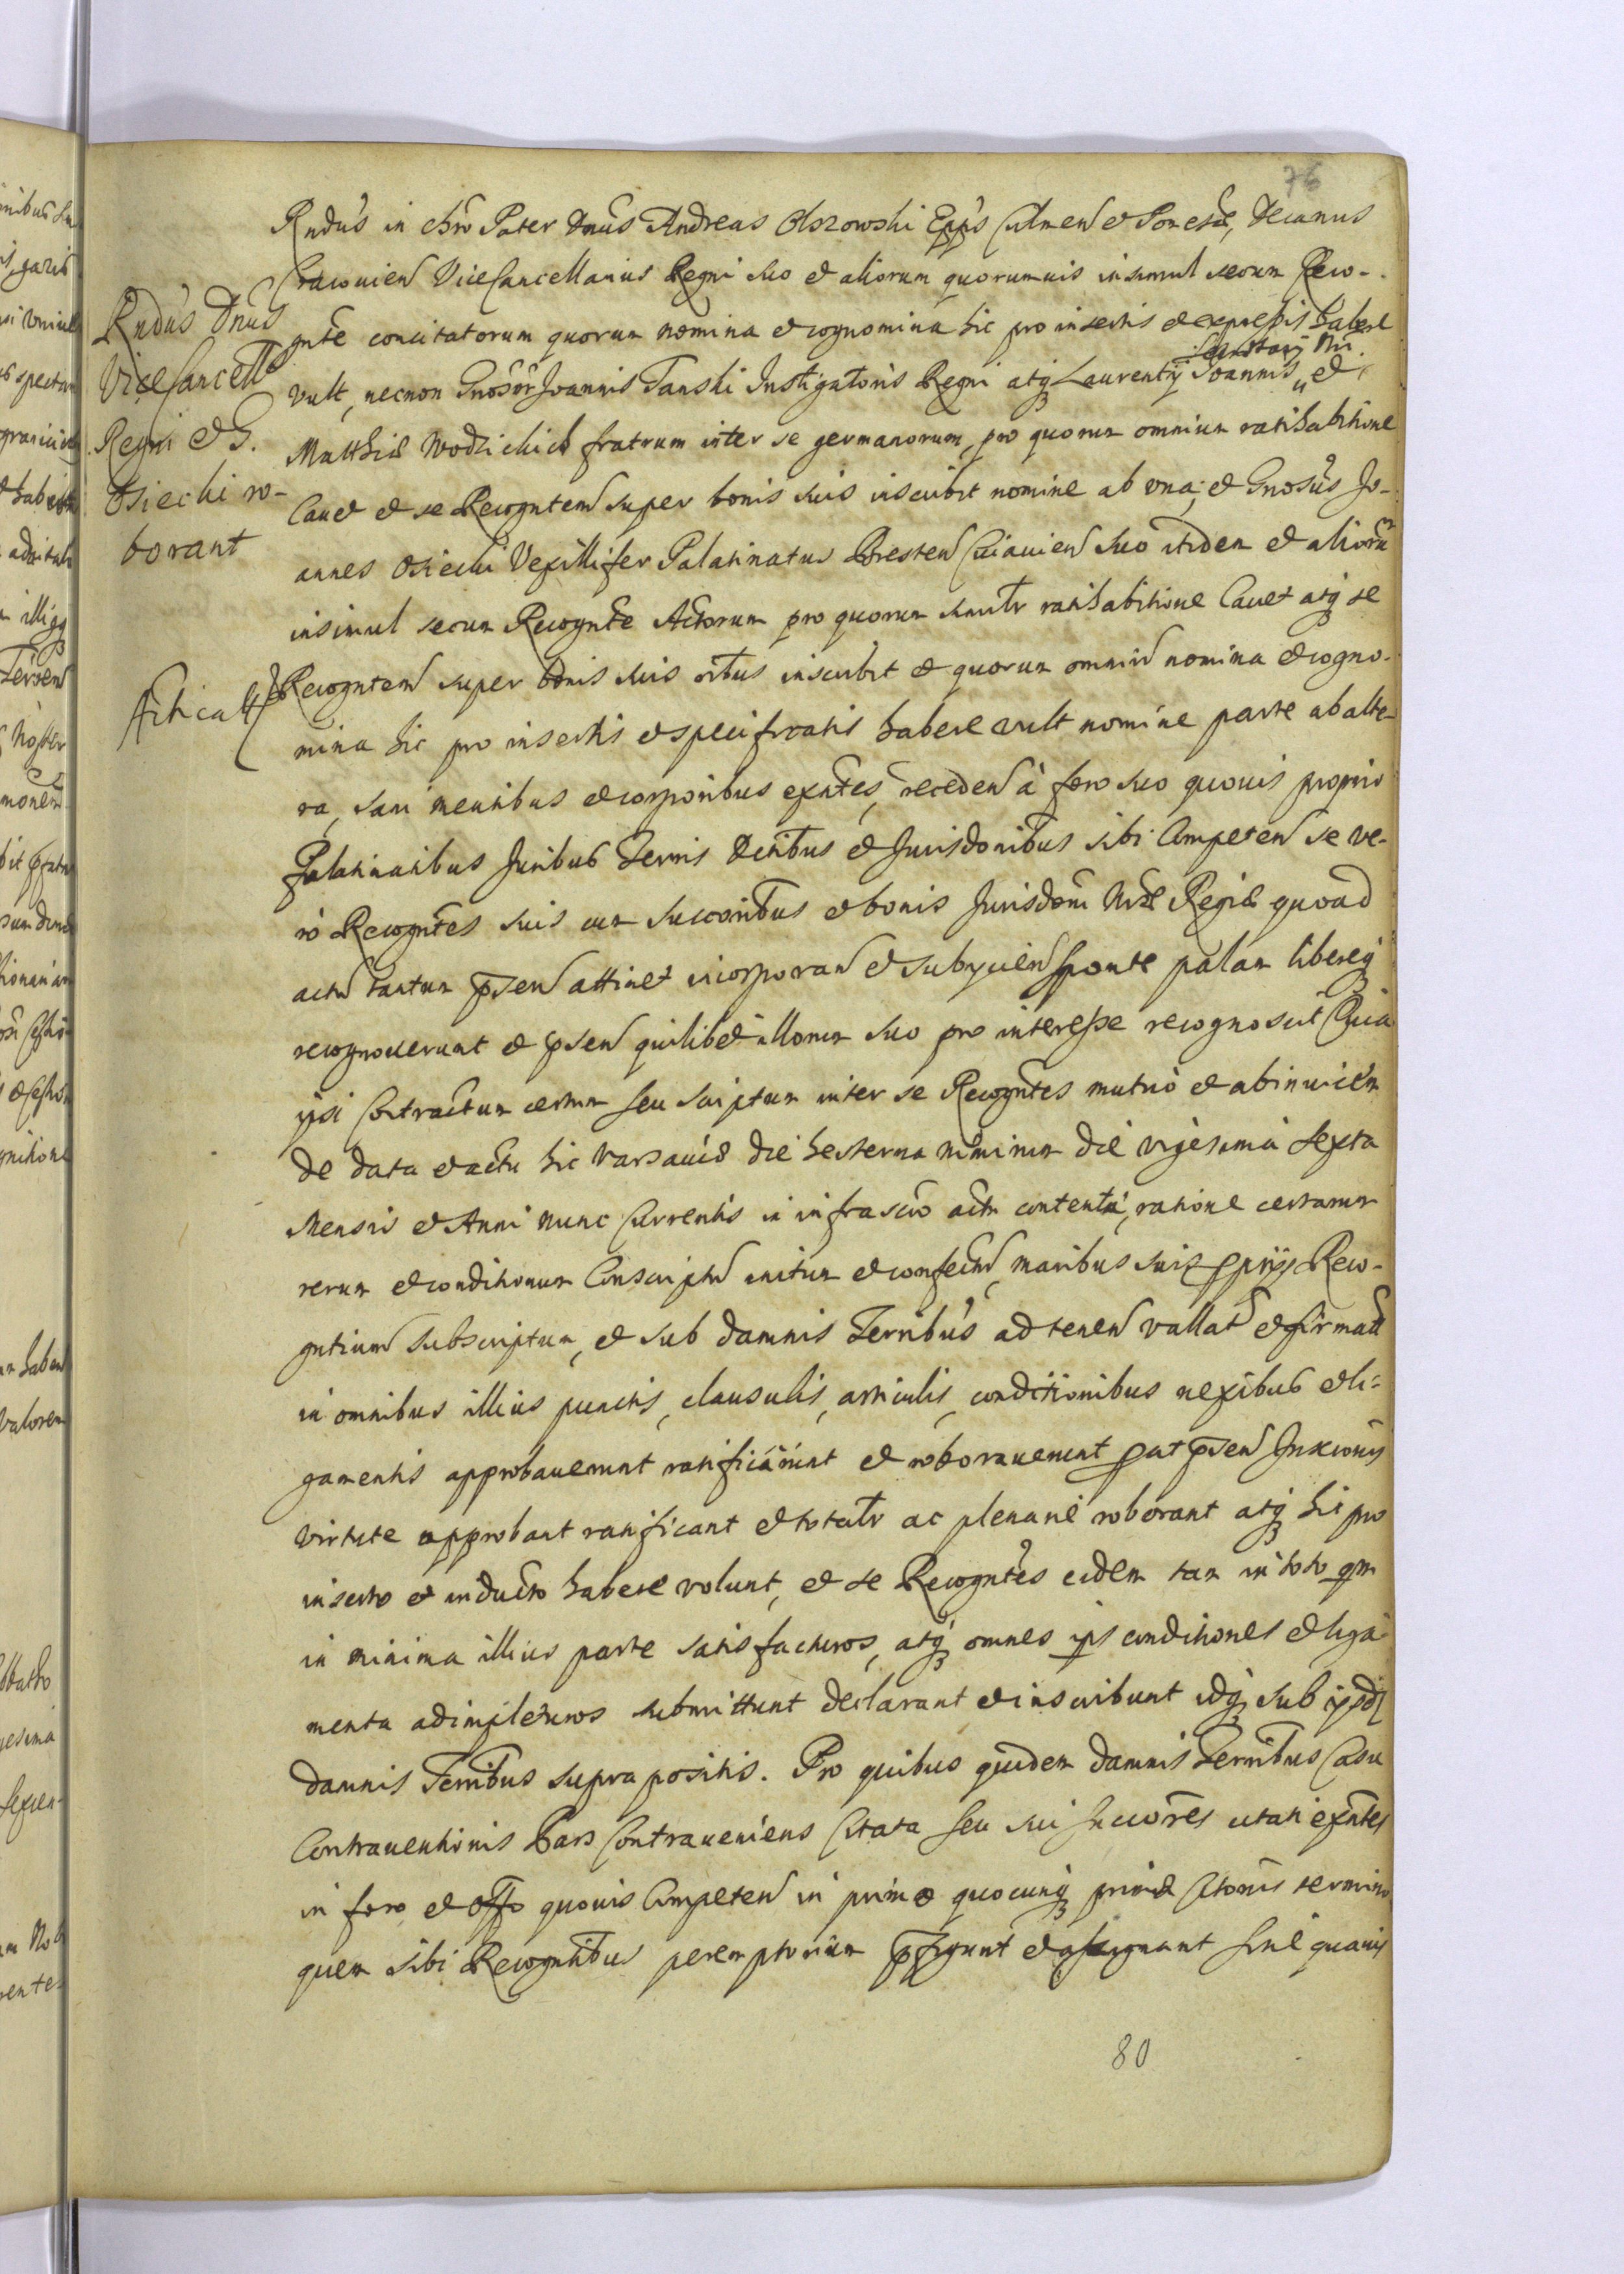 76
Rndus in chro Pater Dnus Andreas Olszowski Epps Culmen et Pomesae, Decanus
Cracovien ViceCancellarius Regni suo et aliorum quorumuis insimul secum Reco-
gnte concitatorum quorum nomina et cognomina hic pro insertis et expressis habere
vult, necnon Gnosor Joannis Tanski Instigatoris Regni atq Laurentij Joannis „ et
Secretarij Nri.
Matthiae Wodzickich fratrum inter se germanorum, pro quorum omnium ratihabitione
Cauet et se Recogntem super bonis suis inscribit nomine ab una; et Gnosus Jo-
annes Osiecki Vexillifer Palatinatus Bresten Cuiauien suo itidem et aliorum
insimul secum Recognte Actorum pro quorum similr ratihabitione Cauet atq se
Recogntem super bonis suis oibus inscribit et quorum omniu nomina et cogno-
mina hic pro insertis et specificatis habere vult nomine parte ab alte-
ra, sani mentibus et corporibus exntes, receden à foro suo quouis proprio
Palatinatibus Juribus Terris Dittibus et Jurisdonibus sibi Competen se ve-
rò Recogntes suis cum succoribus et bonis Jurisdoni Nrae Regiae quoad
actu tantum psen attinet incorporan et subijcien sponte palam libereq
recognouerunt et psen quilibet illorum suo pro interesse recognoscit Quia
ipsi Contractum certum seu scriptum inter se Recogntes mutuò et abinuicem
de data et actu hic Varsauiae die hesterna nimirum die vigesima sexta
Mensis et Anni nunc Currentis in infrascro actu contentu, ratione certarum
rerum et conditionum Conscriptu initum et confectu, manibus suis pprijs Reco-
gntium subscriptum, et sub damnis Terribus ad tenen vallat et firmatt
in omnibus illius punctis, clausulis, articulis, conditionibus nexibus et li-
gamentis approbauerunt ratificarunt et roborauerunt put psen Inscronis
virtute approbant ratificant et totalr ac plenarie roborant atq hic pro
inserto et inducto habere volunt, et se Recogntes eidem tam in toto qm
in minima illius parte satisfacturos, atq omnes ips conditiones et liga-
menta adimpleturos submittunt declarant et inscribunt idq sub ijsd
damnis Terribus supra positis. Pro quibus quidem damnis Terribus Casu
Contrauentionis Pars Contraueniens Citata seu sui succores citati exntes
in foro et offo quouis Competen in primo quocunq primae Citonis termino
quem sibi Recogntibus peremptorium pfigunt et assignant sine quauis
Rndus Dnus
ViceCancell
Regni et G.
Osiecki ro-
borant
80